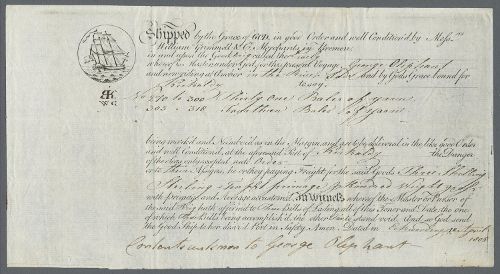 Shipped by the Grace of GOD, in good Order and well Condition'd by Mess.rs
William & Co Merchants in
in and upon the Good called the
whereof is Master under God, for the present Voyage George Oliphant
and now riding at Anchor in the and by Gods Grace bound for
Kirkcaldy to say,
WG
No 270 to 300 Thirty One Bales of yarn
303 - 318 Bales of yarn
being marked and Number'd as in the Margin, and are to be delivered in the like good Order
and well Condition'd, at the aforesaid Port of Kirkcaldy the Danger
of the Seas only excepted unto Order
or to Their Assigns, he or they paying Freight for the said Goods Three Shillings
Sterling
with Primage and Average accustom'd. In Witness whereof the Master or Purser of
the said Brig hath affirmed to Bills of Lading all of this Tenor and Date, the one
of which Bills being accomplish'd, the other to stand void. And, so God send
the Good Ship to her desir'd Port in Safety Amen. Dated in April
1808
Contents unknown to George Oliphant